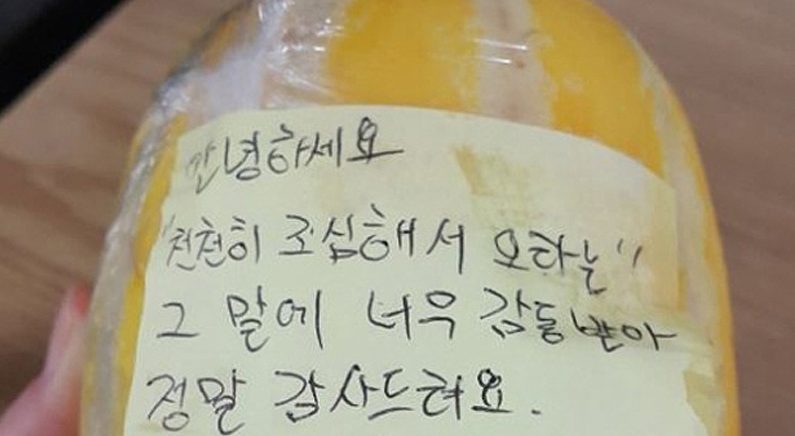 안녕하세요
"천천히 조심해서 오라는"
그 말에 너무 감동받아
정말 감사드려요.